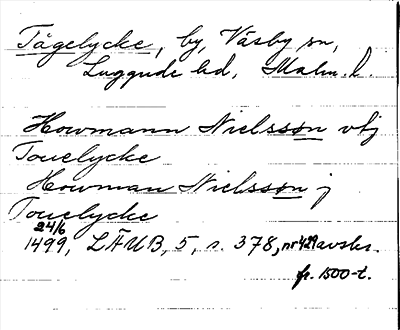 Tågelycke, by, Väsby sn,
Luggude hd, Malm. l.
Howmann Nielssøn vbj
Touelycke
Howman Nielssøn j
Touelycke
24/6
1499, LÄUB, 5, s. 378, nr 429 avskr.
fr. 1500-t.